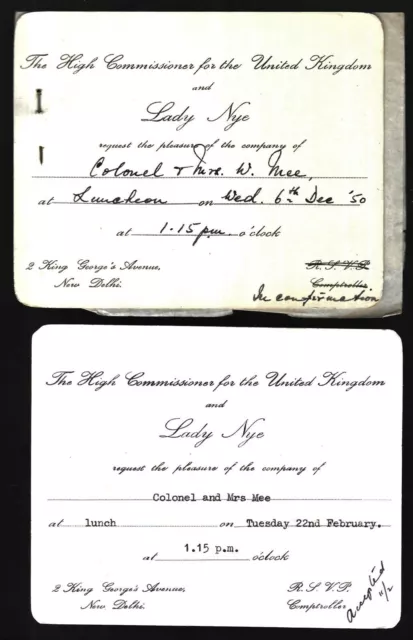 The High Commissioner for the United Kingdom
and
Lady Nye
request the pleasure of the company of
Colonel & Mrs. W. Mee,
at Luncheon on Wed. 6th Dec '50
at 1.15 p.m. o'clock
2 King George's Avenue, R.S.V.P.
New Delhi. Comptroller.
In confirmation
The High Commissioner for the United Kingdom
and
Lady Nye
request the pleasure of the company of
Colonel and Mrs Mee
at lunch on Tuesday 22nd February.
at 1.15 p.m. o'clock
2 King George's Avenue, R.S.V.P.
New Delhi. Comptroller
accepted
11/2